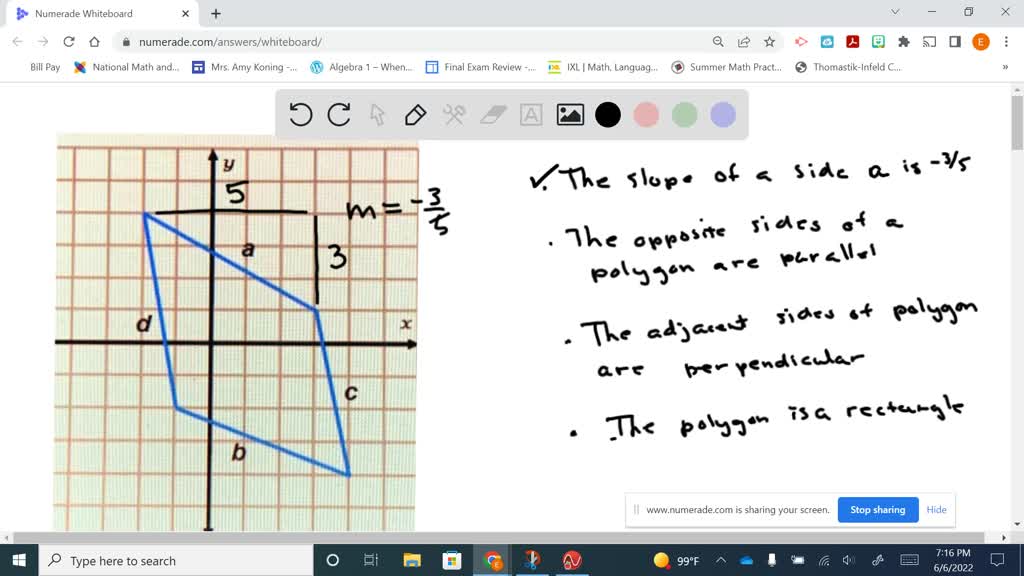 Numerade Whiteboard
numerade.com/answers/whiteboard/
Bill Pay
National Math and...
Mrs. Amy Koning -...
Algebra 1 – When...
Final Exam Review -...
IXL | Math, Languag...
Summer Math Pract...
Thomastik-Infeld C...
»
A
y
5
m = -3/5
a
3
d
x
c
b
✓. The slope of a side a is -3/5
. The opposite sides of a
polygon are parallel
. The adjacent sides of polygon
are perpendicular
. The polygon is a rectangle
www.numerade.com is sharing your screen.
Stop sharing
Hide
Type here to search
99°F
7:16 PM
6/6/2022